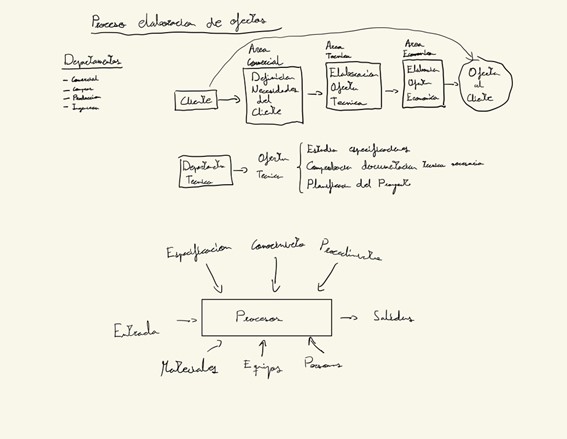 Proceso elaboracion de ofertas
Departamentos
- Comercial
- Compras
- Produccion
- Ingenieria
Cliente
Area
Comercial
Definicion
Necesidades
del
Cliente
Area
Tecnica
Elaboracion
Oferta
Tecnica
Area
Economica
Elaboracion
Oferta
Economica
Oferta
al
Cliente
Departamento
Tecnico
Oferta
Tecnica
Estudio especificaciones
documentacion tecnica necesaria
Planificacion del Proyecto
Especificacion
Conocimiento
Procedimientos
Entrada
Procesos
Salidas
Materiales
Equipos
Personas